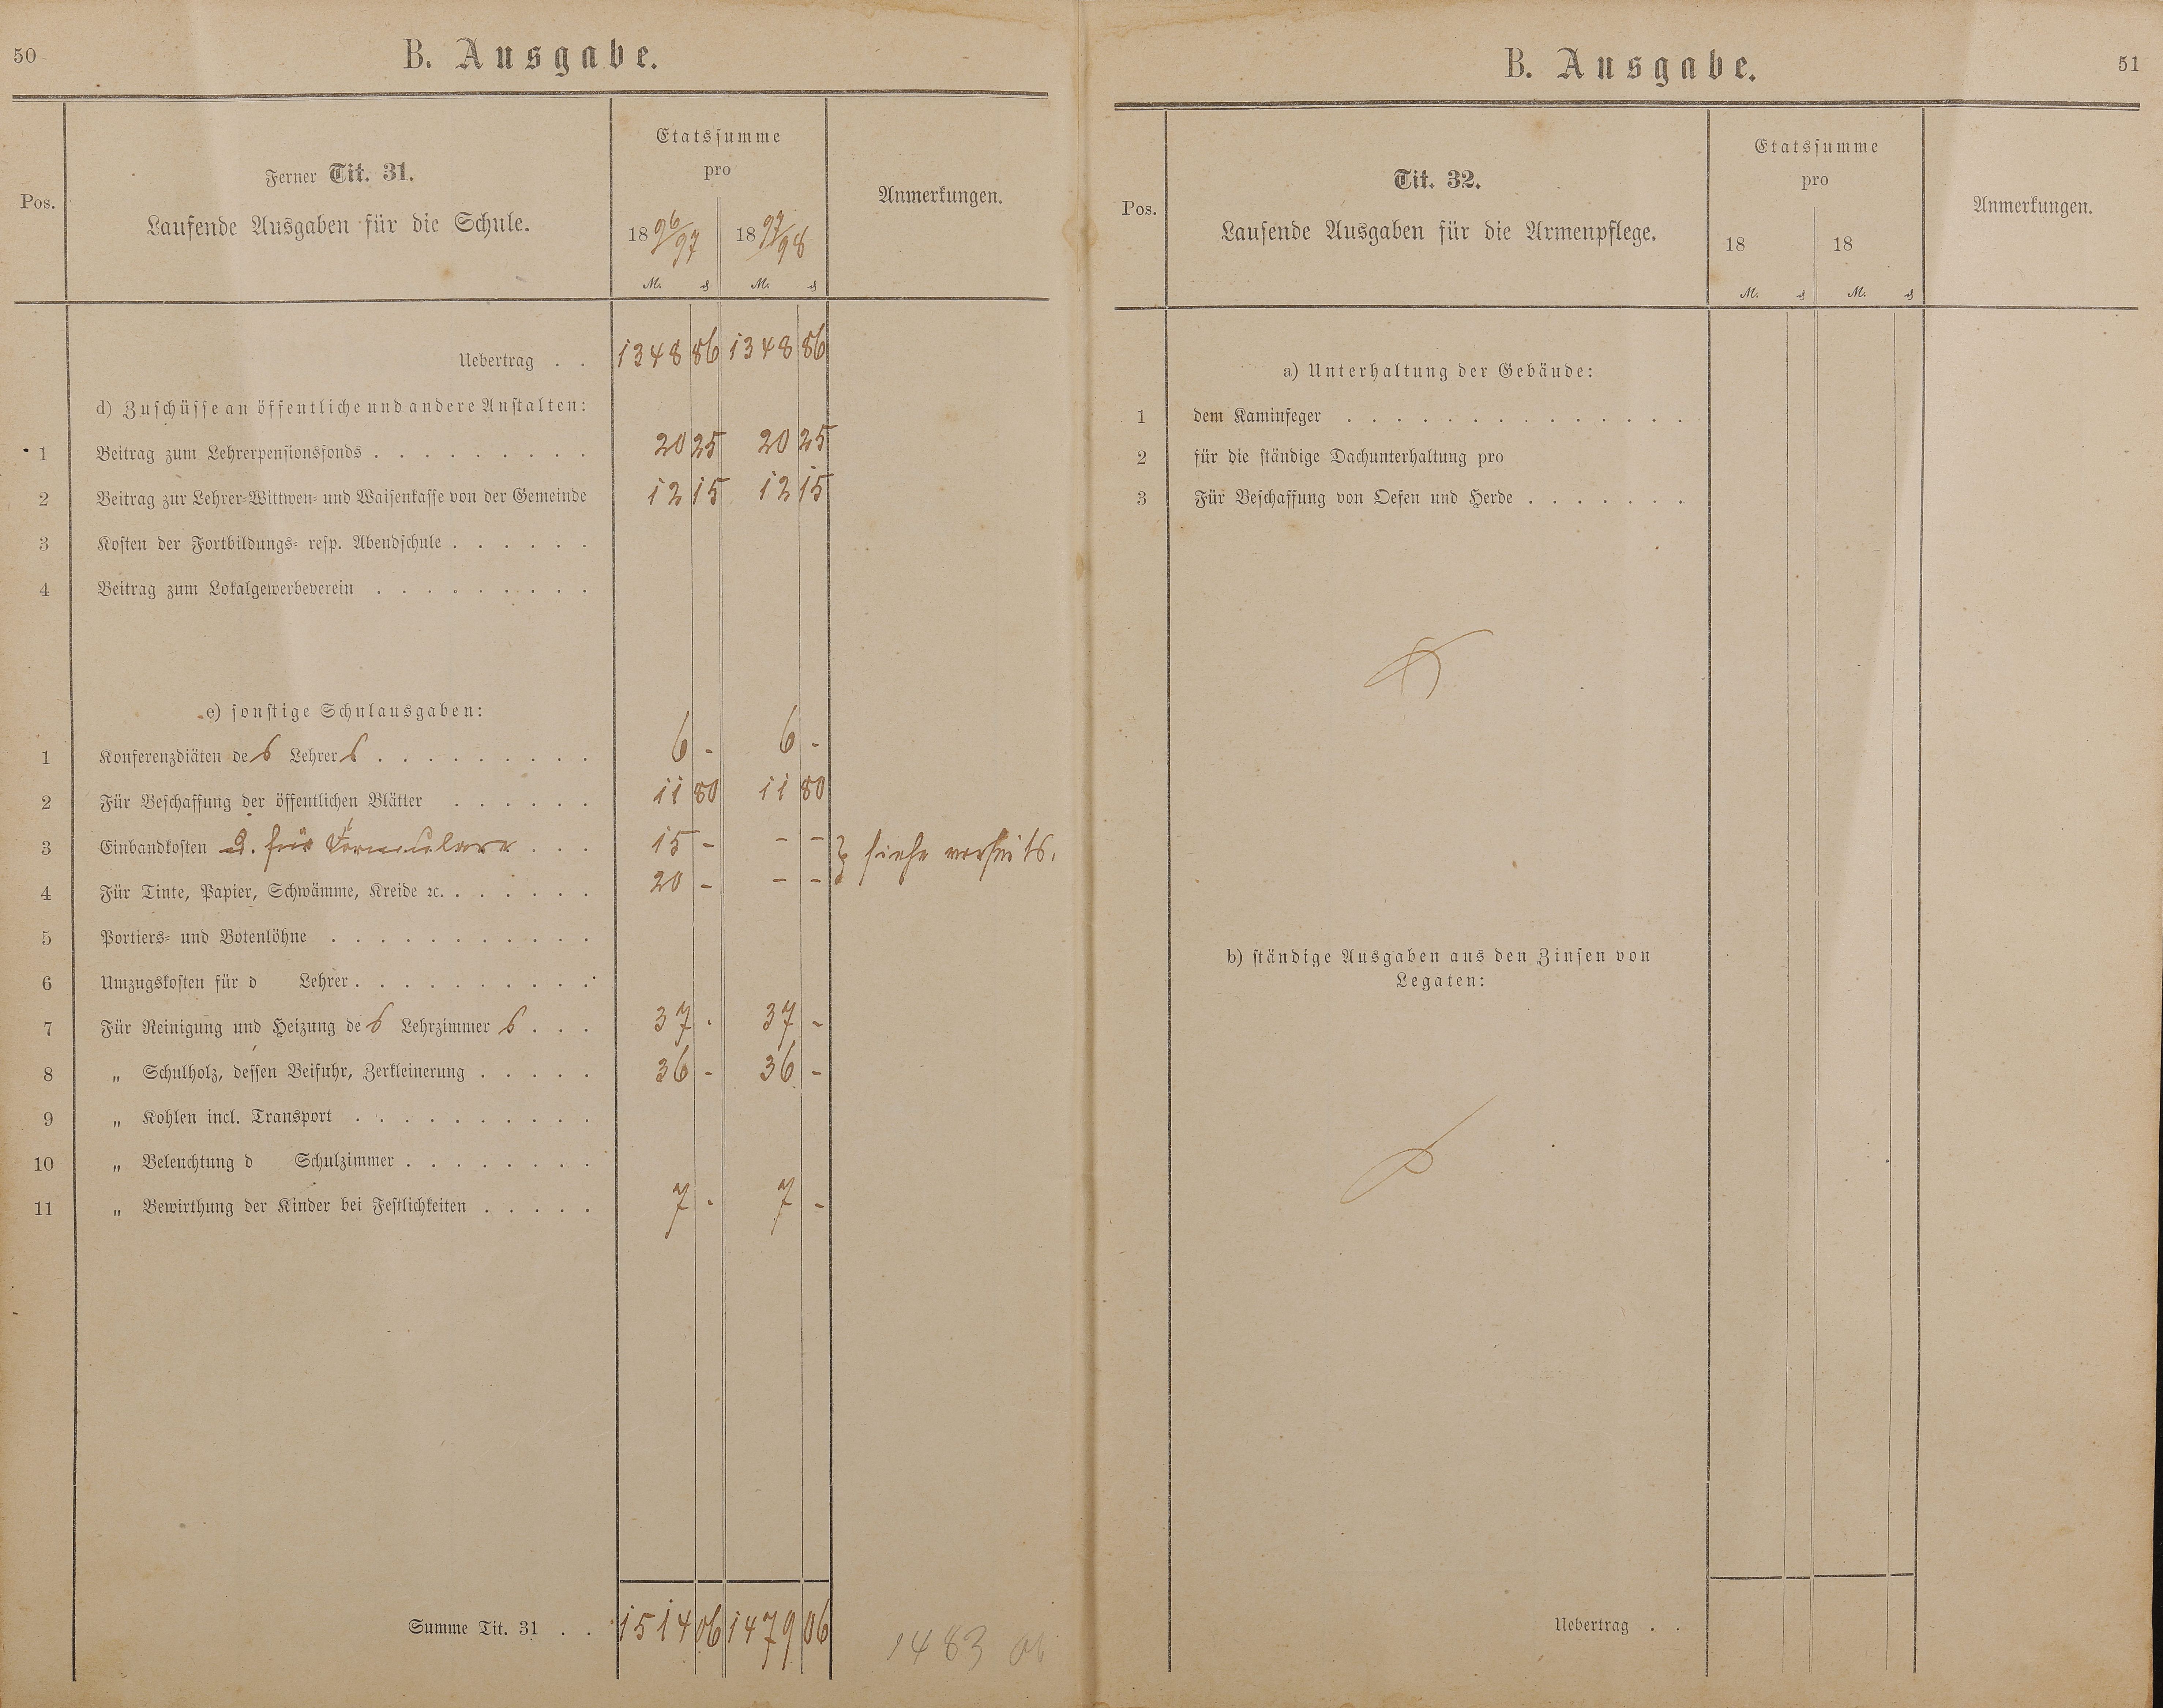 50
B. Ausgabe.
Pos.
Ferner Tit. 31.
Laufende Ausgaben für die Schule.
Etatssumme
pro
1896/97 1897/98
M. ₰ M. ₰
Anmerkungen.
Uebertrag . . 1348 86 1348 86
d) Zuschüsse an öffentliche und andere Anstalten:
1 Beitrag zum Lehrerpensionsfonds . . . . . . . . . 20 25 20 25
2 Beitrag zur Lehrer-Wittwen- und Waisenkasse von der Gemeinde 12 15 12 15
3 Kosten der Fortbildungs- resp. Abendschule . . . . . .
4 Beitrag zum Lokalgewerbeverein . . . . . . . . .
e) sonstige Schulausgaben:
1 Konferenzdiäten des Lehrers . . . . . . . . . 6 - 6 -
2 Für Beschaffung der öffentlichen Blätter . . . . . . 11 80 11 80
3 Einbandkosten u. für Formulare . . . 15 - - - } siehe vorseits.
4 Für Tinte, Papier, Schwämme, Kreide ꝛc. . . . . . . 20 - - -
5 Portiers- und Botenlöhne . . . . . . . . . . .
6 Umzugskosten für d Lehrer . . . . . . . . . .
7 Für Reinigung und Heizung des Lehrzimmers . . . 37 - 37 -
8 „ Schulholz, dessen Beifuhr, Zerkleinerung . . . . . 36 - 36 -
9 „ Kohlen incl. Transport . . . . . . . . . .
10 „ Beleuchtung d Schulzimmer . . . . . . . .
11 „ Bewirthung der Kinder bei Festlichkeiten . . . . . 7 - 7 -
Summe Tit. 31 . . 1514 06 1479 06 1483 06
B. Ausgabe.
51
Pos.
Tit. 32.
Laufende Ausgaben für die Armenpflege.
Etatssumme
pro
18 18
M. ₰ M. ₰
Anmerkungen.
a) Unterhaltung der Gebäude:
1 dem Kaminfeger . . . . . . . . . . . . . .
2 für die ständige Dachunterhaltung pro
3 Für Beschaffung von Oefen und Herde . . . . . . .
b) ständige Ausgaben aus den Zinsen von
Legaten:
Uebertrag . .